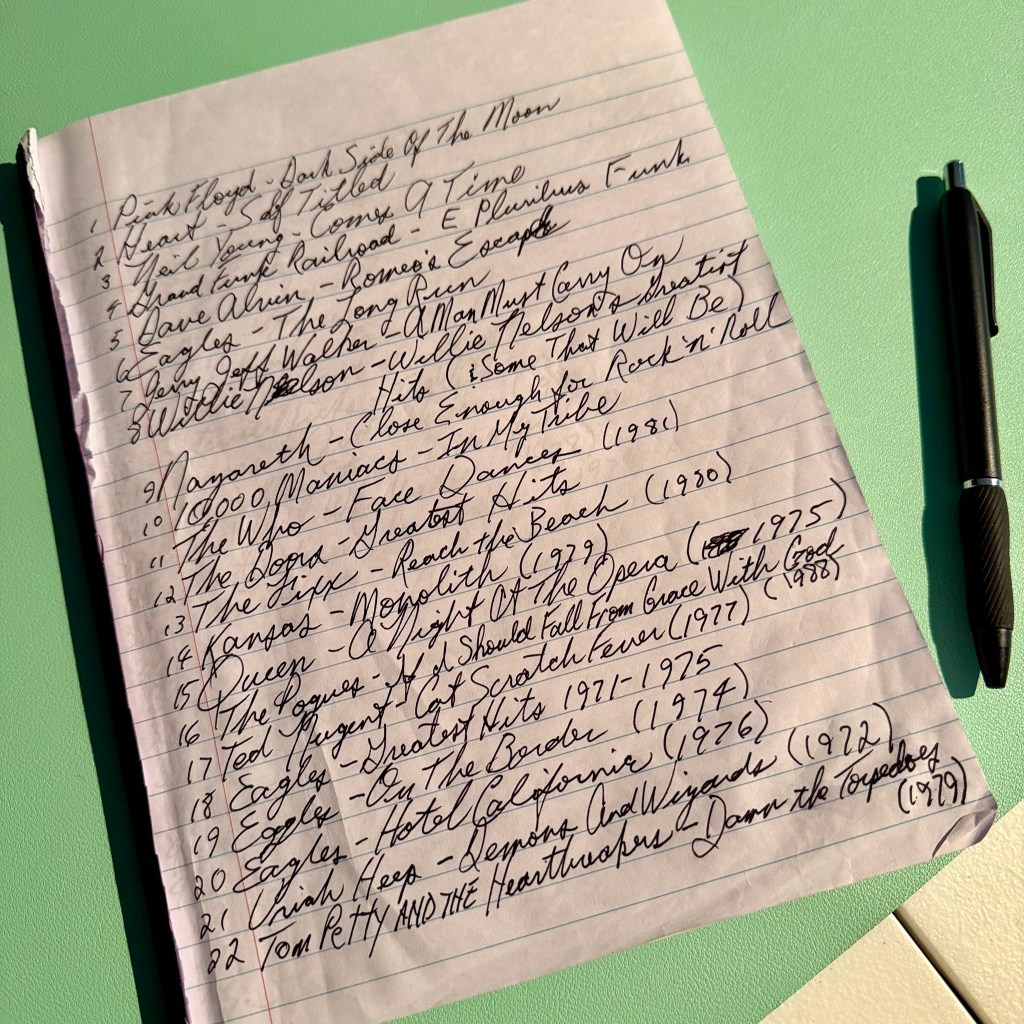 1 Pink Floyd - Dark Side Of The Moon
2 Heart - Self Titled
3 Neil Young - Comes A Time
4 Grand Funk Railroad - E Pluribus Funk
5 Dave Alvin - Romeo's Escape
6 Eagles - The Long Run
7 Jerry Jeff Walker - A Man Must Carry On
8 Willie Nelson - Willie Nelson's Greatest
Hits (& Some That Will Be)
9 Nazareth - Close Enough for Rock 'n' Roll
10 10,000 Maniacs - In My Tribe
11 The Who - Face Dances (1981)
12 The Doors - Greatest Hits
13 The Fixx - Reach the Beach (1980)
14 Kansas - Monolith (1979)
15 Queen - A Night At The Opera (1975)
16 The Pogues - If I Should Fall From Grace With God
(1988)
17 Ted Nugent - Cat Scratch Fever (1977)
18 Eagles - Greatest Hits 1971-1975
19 Eagles - On The Border (1974)
20 Eagles - Hotel California (1976)
21 Uriah Heep - Demons And Wizards (1972)
22 Tom Petty AND THE Heartbreakers - Damn the Torpedoes
(1979)